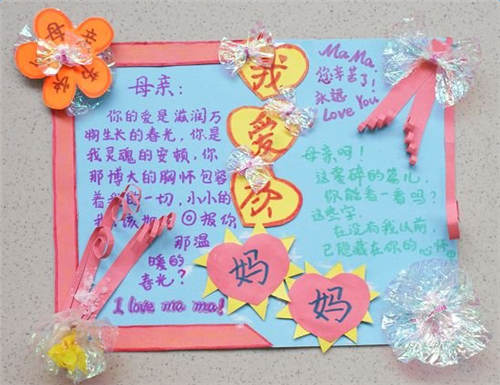 母亲:
你的爱是滋润万
物生长的春光,你是
我灵魂的安顿,你
那博大的胸怀包容
着我的一切,小小的
我该 回报你
那温
暖的
春光?
I love ma ma!
我
爱
你
妈
妈
MaMa
您辛苦了!
永远
Love You
母亲啊!
这零碎的篇儿,
你能看一看吗?
这些字,
在没有我以前,
已隐藏在你的心怀